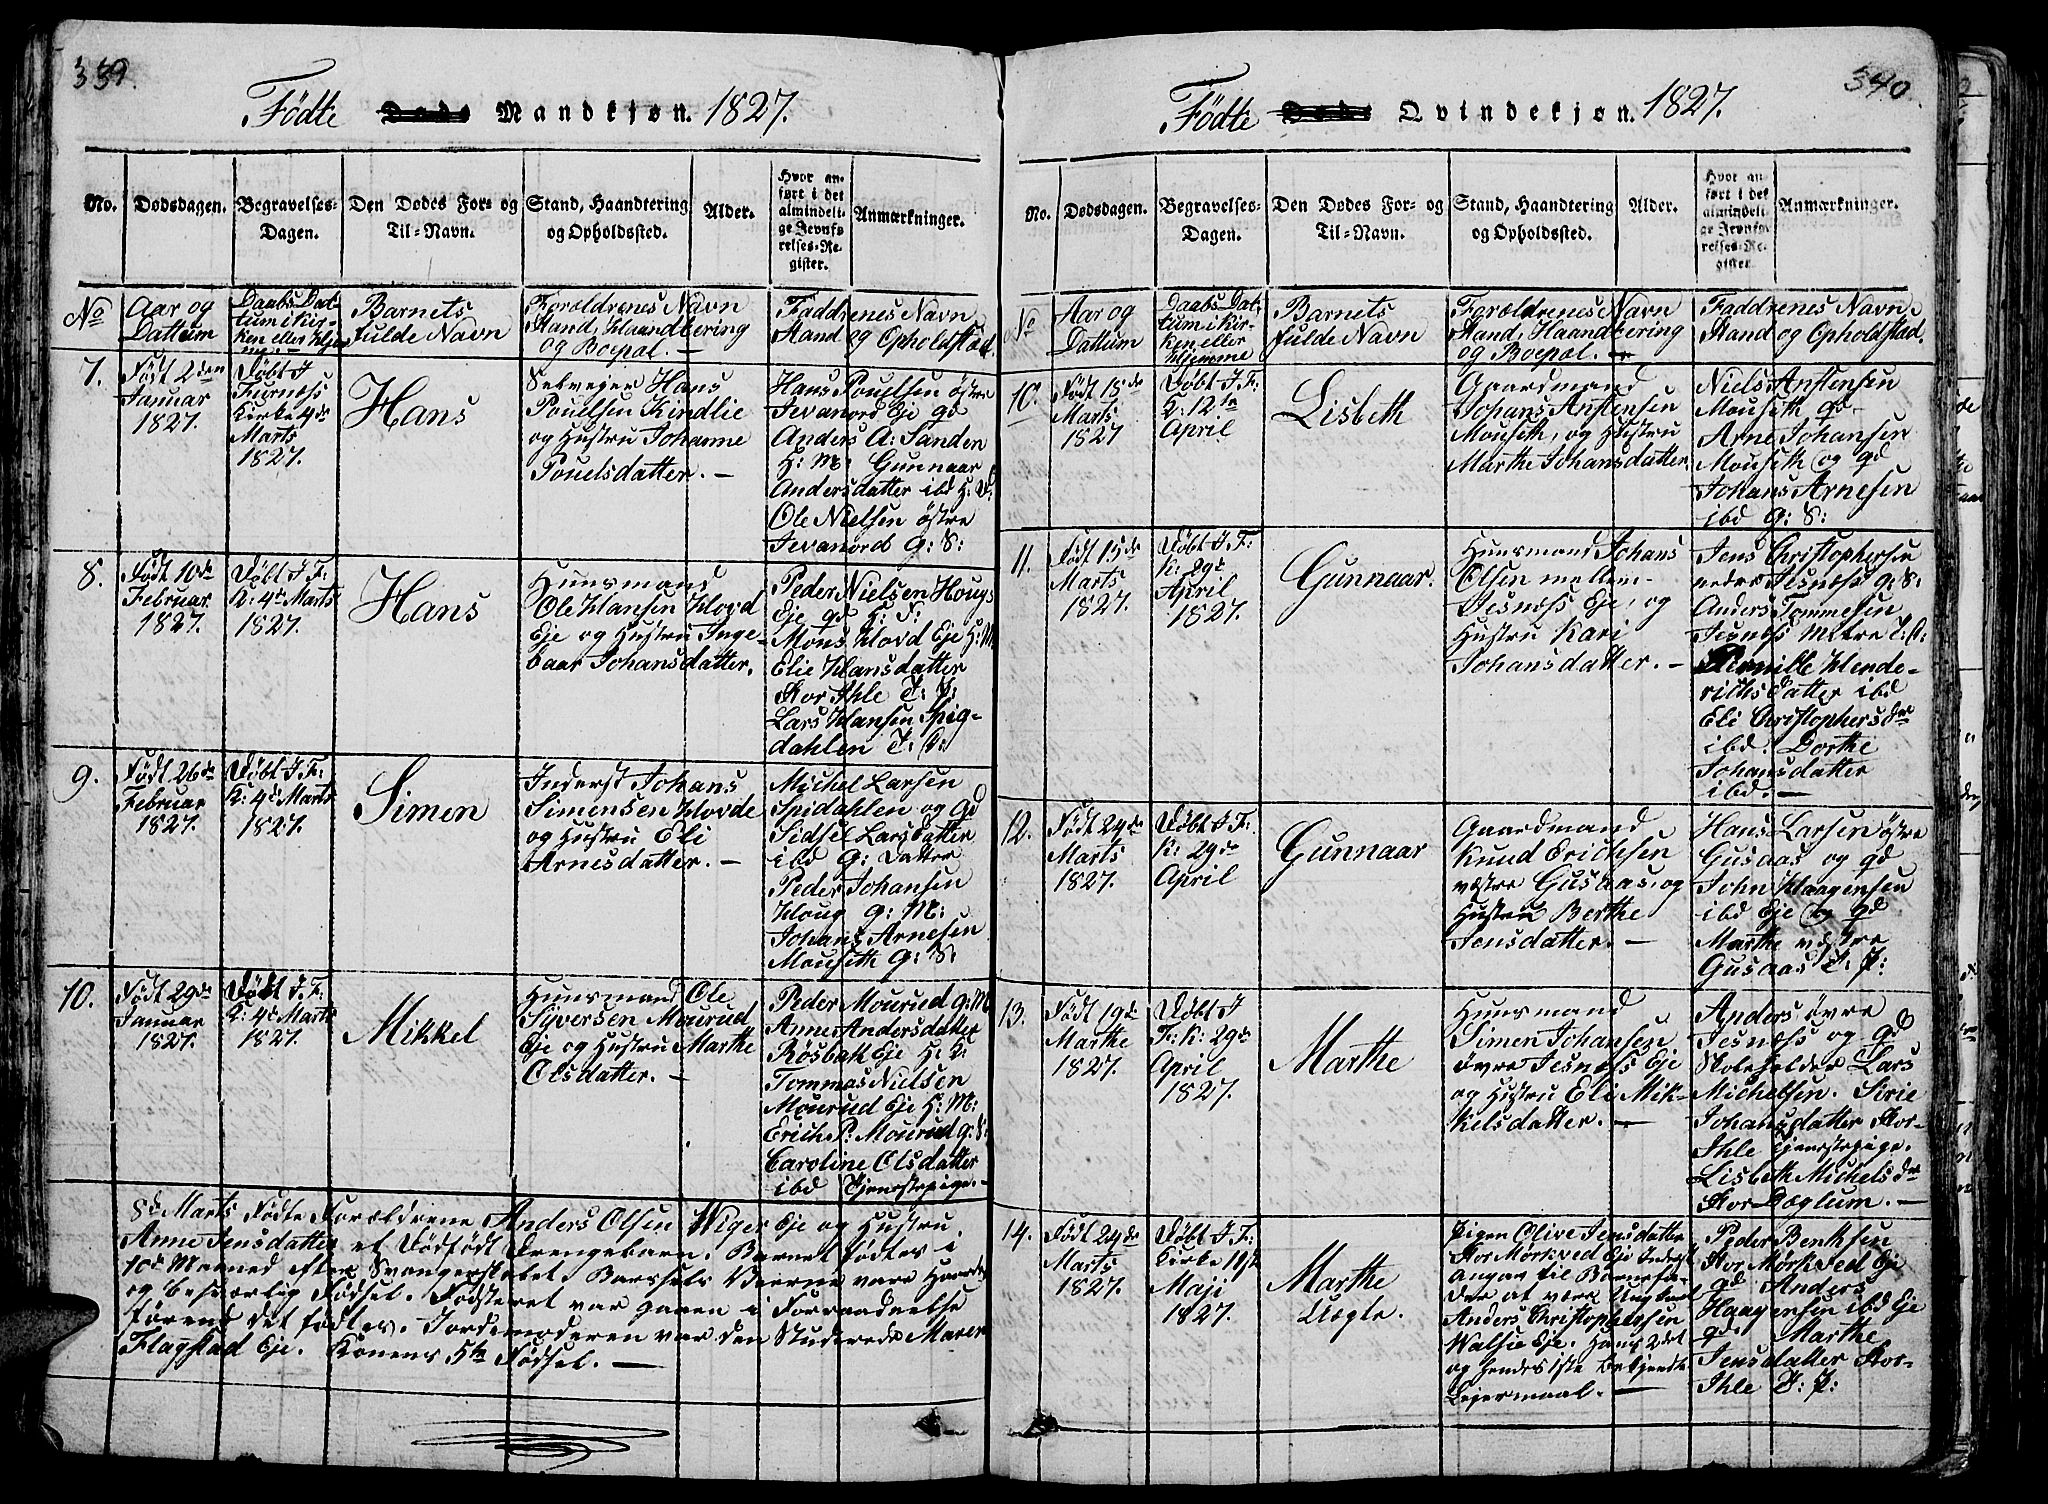 339.
Födte Døde Mandkjøn. 1827.
No.
Dødsdagen.
Begravelses-
Dagen.
Den Dødes For- og
Til-Navn.
Stand, Haandtering
og Opholdssted.
Alder.
Hvor an-
ført i det
almindeli-
ge Jevnfø-
relses-Re-
gister.
Anmærkninger.
No
Aar og
Dattum
Daabs Dat-
tum i Kir-
ken eller Hjem-
me.
Barnets
fulde Navn
Forældrenes Navn
Stand, Haandtering
og Boepæl. —
Faddrenes Navn
Stand og Opholdstæd.
7.
Födt 2den
Januar
1827.
Døbt I
Furnæss
Kirke 4de
Marts
1827.
Hans
Selvejer Hans
Pouelsen Kindlie
og Hustru Johanne
Pouelsdatter. —
Hans Pouelsen östre
Jevanord Eje gd
Anders A: Sanden
H: M: Gunnaar
Andersdatter ibd H: D:
Ole Nielsen östre
Jevanord G: S:
8.
Födt 10de
Februar
1827.
Døbt I F:
K: 4de Marts
1827.
Hans
Huusmand
Ole Hansen Hovd
Eje og Hustru Inge-
baar Johansdatter.
Peder Nielsen Houg
Eje gd H: S:
Mons Hovd Eje H: M
Elie Hansdatter
Stor Ihle T: P:
Lars Hansen Spig-
dahlen T: D:
9.
Födt 26de
Februar
1827.
Døbt I F:
K: 4de Marts
1827.
Simen
Inderst Johans
Simensen Hovde
og Hustru Eli
Arnesdatter. —
Michel Larsen
Spidahlen og Gd
Sidsel Larsdatter
ibd G: Datter
Peder Johansen
Houg G: M:
Johans Arnesen
Mouseth G: S:
10.
Födt 29de
Januar
1827.
Døbt I F:
K: 4de Marts
1827.
Mikkel
Huusmand Ole
Syversen Mourud
Eje og Hustru Marthe
Olsdatter. —
Peder Mourud G: M
Anne Andersdatter
Rösbak Eje H: K:
Tommas Nielsen
Mourud Eje H: M:
Erich P: Mourud G: S:
Caroline Olsdatter
ibd Tjenestepige. —
8de Marts Födte Forældrene Anders Olsen Wiger Eje og Hustru
Anne Jensdatter et Dödfödt Drengebarn. Barnet födtes i
10de Maaned efter Svangerskabet. Barsels Veerne vare Haarde
og besværlig Födsel. Fosteret var gaaen i Forraadnelse
förend det födtes. Jordemoderen var den Studerede Maren
Flagstad Eje. Konens 5te Födsel. —
340.
Födte Døde Qvindekjøn. 1827.
No.
Dødsdagen.
Begravelses-
Dagen.
Den Dødes For- og
Til-Navn.
Stand, Haandtering
og Opholdssted.
Alder.
Hvor an-
ført i det
almindeli-
ge Jevnfø-
relses-Re-
gister.
Anmærkninger.
No
Aar og
Dattum
Daabs Dat-
tum i Kir-
ken eller
Hjemme
Barnets
fulde Navn
Forældrenes Navn
Stand, Haandtering
og Boepæl. —
Faddrenes Navn,
Stand og Opholdstæd.
10.
Födt 18de
Marts
1827
Døbt I F:
K: 12te
April
Lisbeth
Gaardmand
Johans Anstensen
Mouseth, og Hustru
Marthe Johansdatter
Niels Anstensen
Mouseth gd
Arne Johansen
Mouseth og gd
Johans Arnesen
ibd G: S:
11.
Födt 15de
Marts
1827.
Døbt I F:
K: 29de
April
1827.
Gunnaar.
Huusmand Johans
Olsen mellem-
Jesnæss Eje, og
Hustru Kari
Johansdatter. —
Jens Christophersen
nedre Jesnæss G: S:
Anders Tommesen
Jesnæss Mttre T: D:
Pernille Hende-
richsdatter ibd
Eli Christophersdtr
ibd. Dorthe
Johansdatter
ibd. —
12.
Födt 24de
Marts
1827.
Døbt I F:
K: 29de
April
Gunnaar
Gaardmand
Knud Erichsen
vestre Gusaas, og
Hustru Berthe
Jensdatter. —
Hans Larsen östre
Gusaas og gd
John Haagensen
ibd Eje og gd
Marthe vestre
Gusaas T: P:
13.
Födt 19de
Marthe
1827.
Døbt I
F: K: 29de
April
1827.
Marthe
Huusmand
Simen Johansen
övre Jesness Eje
og Hustru Eli Mik-
kelsdatter. —
Anders övre
Jesnæss og Gd
Skoleholder Lars
Michelsen. Sirie
Johansdatter Stor-
Ihle Tjenestepige.
Lisbeth Michelsdtr
Stor Dæglum. —
14.
Födt 24de
Marts
1827.
Døbt I F:
Kirke 19de
Maji
1827.
Marthe
Uægte.
Pigen Olive Jensdatter
Stor Mörkved Eje Inderst
Angav til Barnefa-
der at være Ungkarl
Anders Christophersen
Walsie Eje. Hans 2det
og hendes 1ste bekjendte
Lejermaal. —
Peder Benthsen
Stor Mörkved Eje
gd Anders
Haagensen ibd Eje
gd. Marthe
Jensdatter Stor-
Ihle T: P: